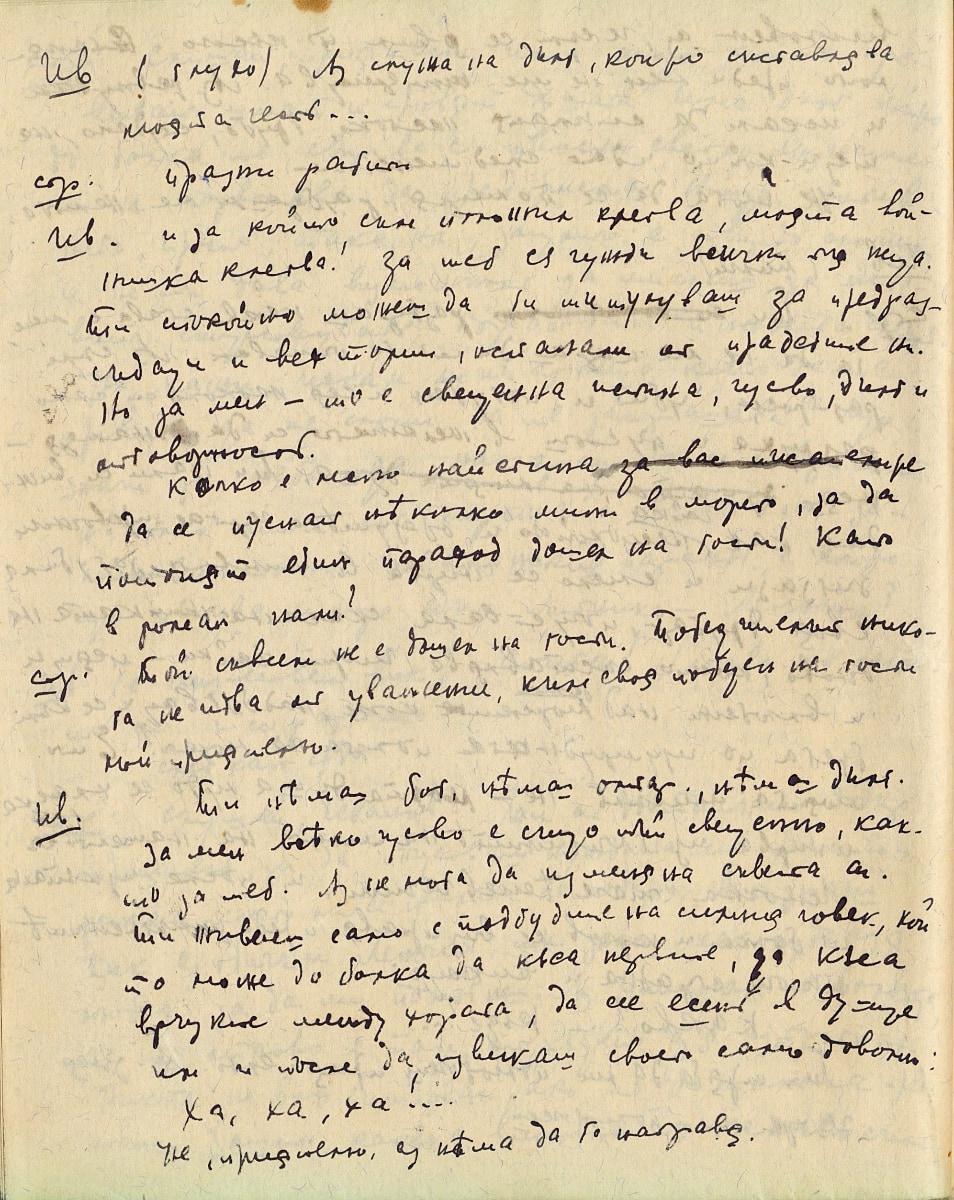 Ив (глухо) Аз служа на дълг, който съставлява
моята чест...
сор. Празни работи
Ив. и за който съм положил клетва, моята вой-
нишка клетва! За теб са чужди всички тия неща.
Ти спокойно можеш да ги за предраз-
съдъци и , останали от прадедите ни.
Но за мен – то е свещенна истина, чуство, дълг и
отговорность.
Колко е лесно наистина за вас
да се пуснат нѣколко мини в морето, за да
потопят един параход дошел на гости! Като
в роман нали?
сор. Той съвсем не е дошел на гости. Победителят нико-
га не идва от уважение, към своя победен на гости
мой приятелю.
Ив. Ти нѣмаш бог, нѣмаш олтар, нѣмаш дълг.
За мен всѣко чуство е също тъй свещенно, как-
то за теб. Аз не мога да изменя на съвестта си.
Ти живееш само с подбудите на силния човек, кой
то може до болка да къса нервите, да къса
връзките между хората, да сее есент в душите
им и после да извикаш своето само доволно:
Ха, ха, ха!...
Не, приятелю, аз нѣма да го направя.